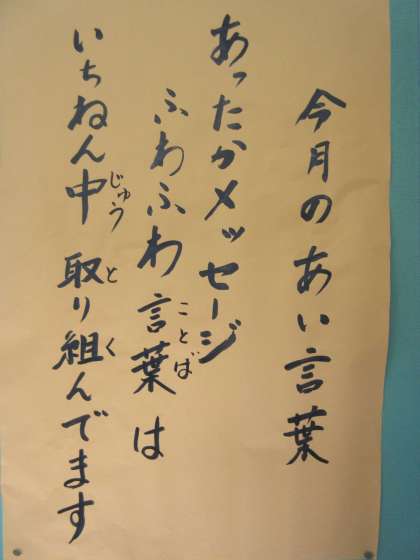 今月のあい言葉
あったかメッセージ
ふわふわ言葉は
ことば
いちねん中取り組んでます
じゅう
と
く